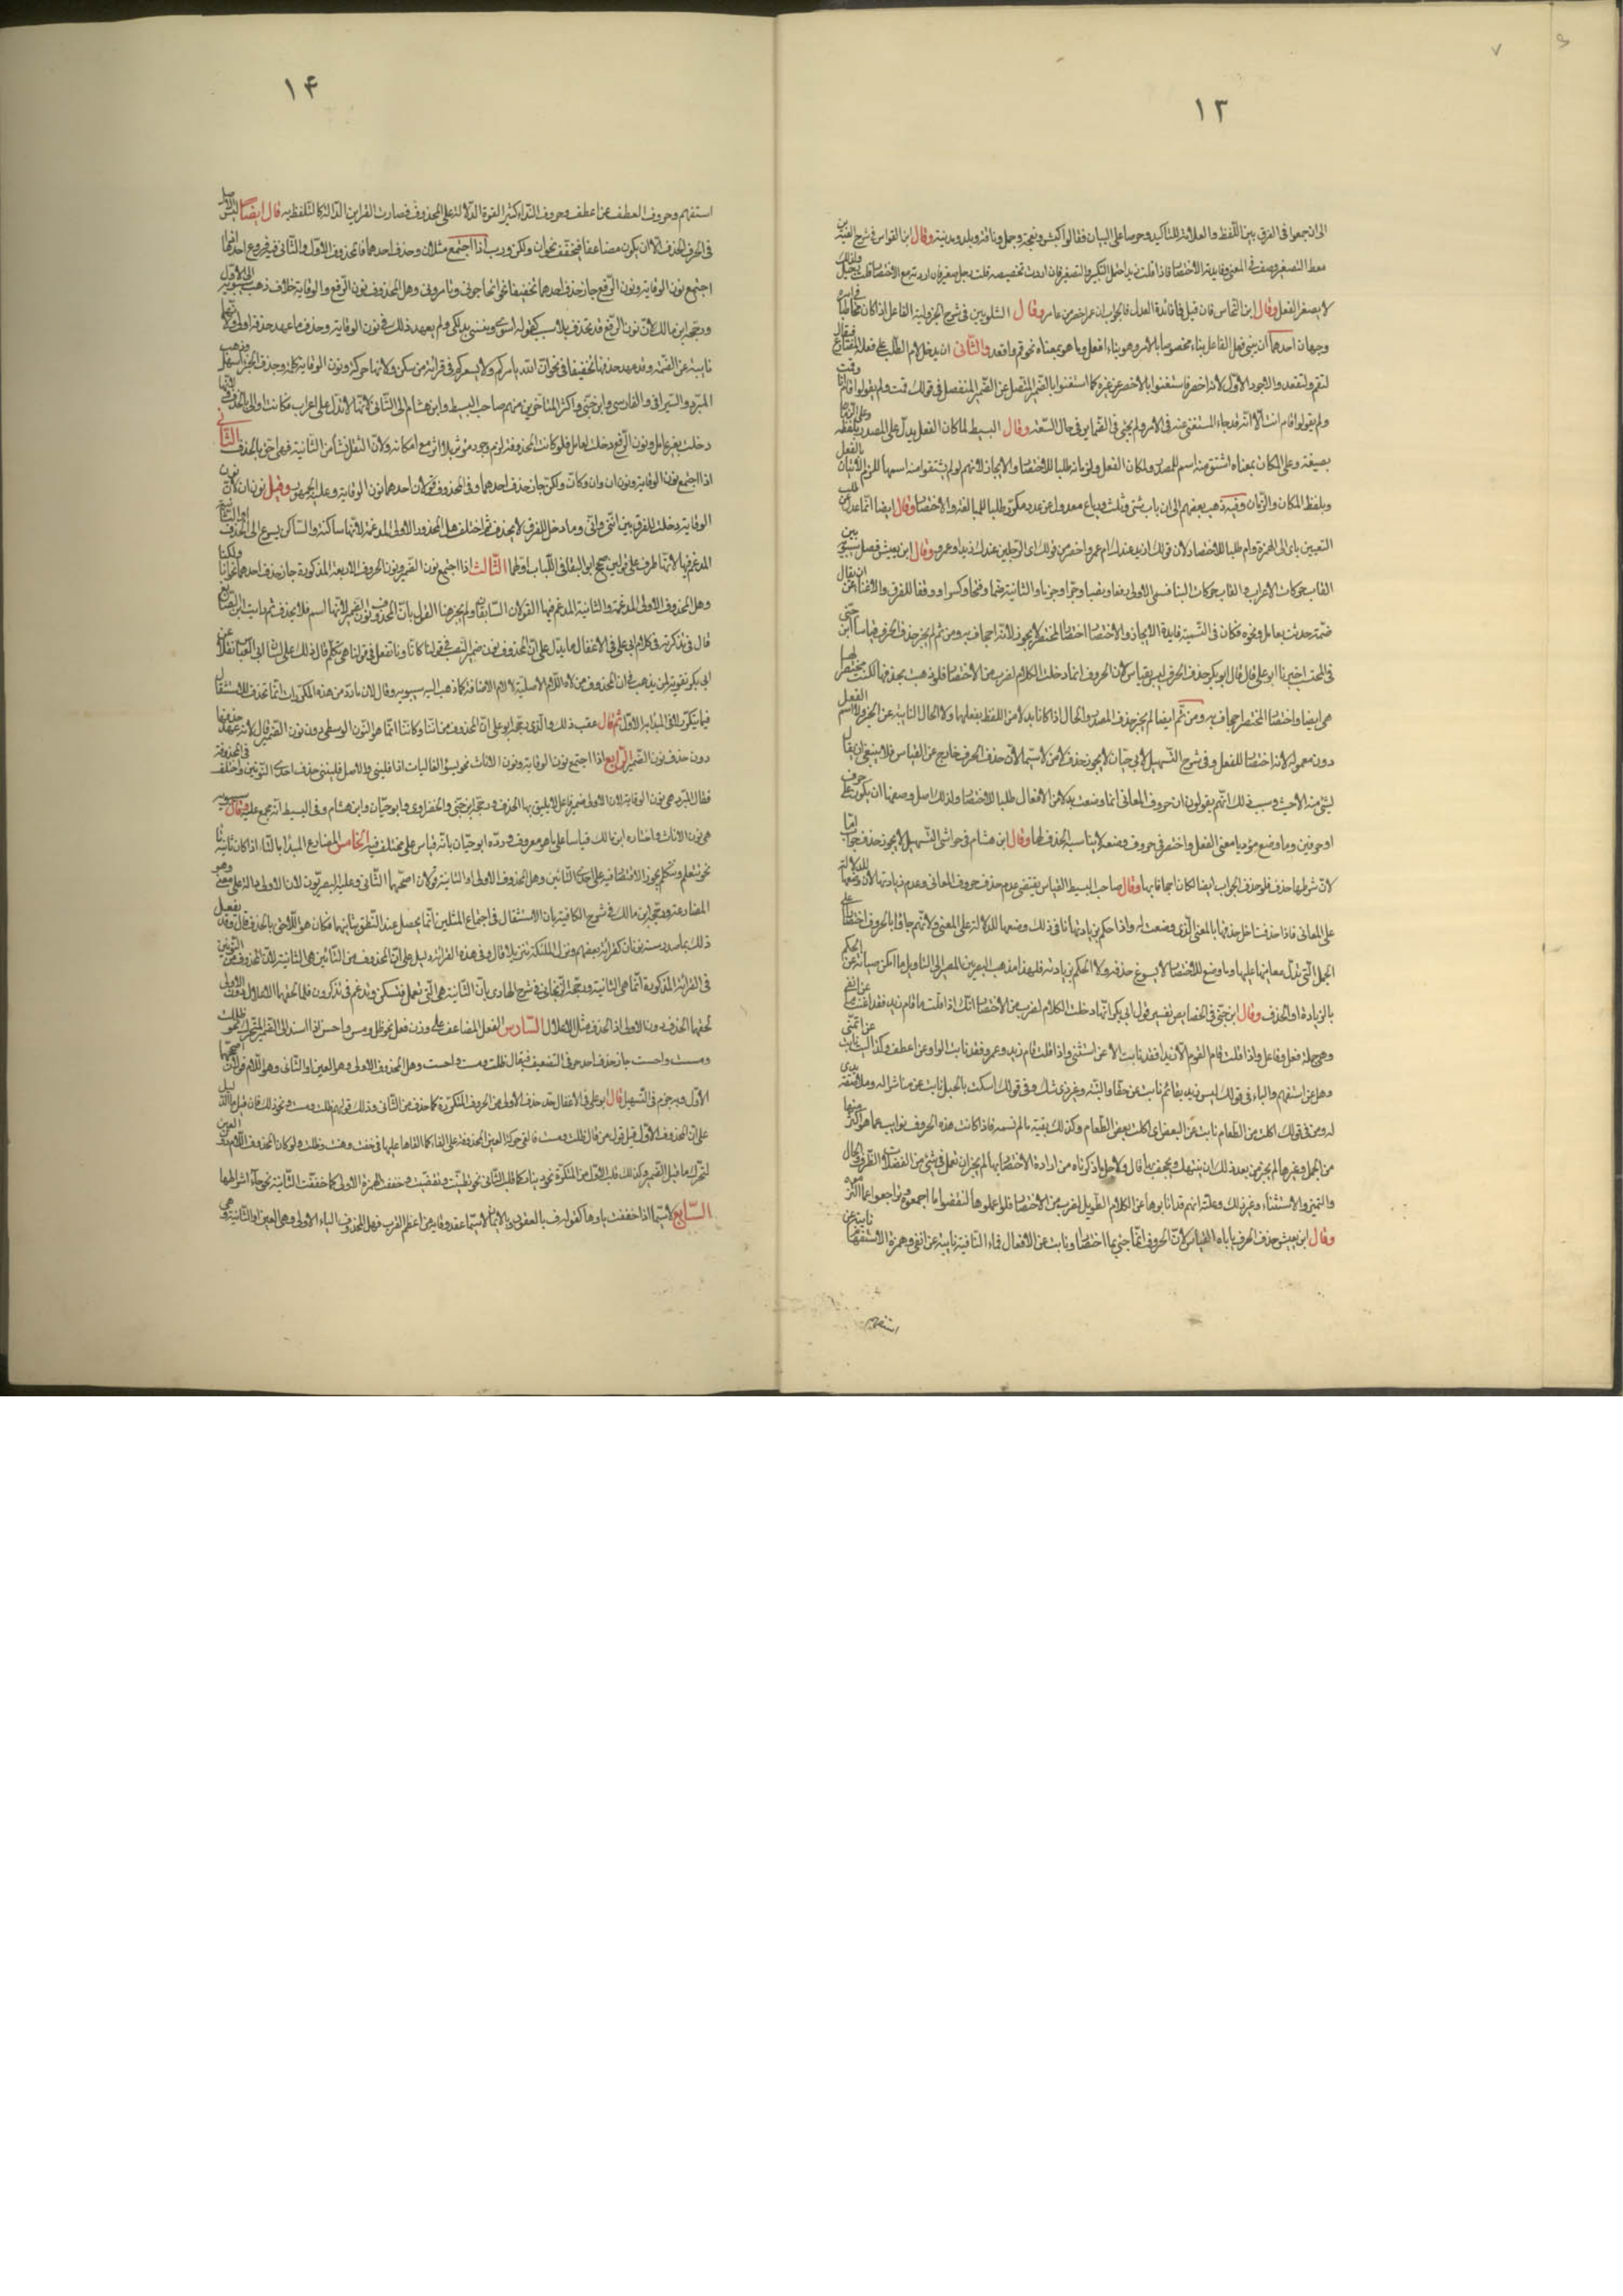 ١٣
الى ان جمعوا فى الفرق بين اللفظ والعلامة للتأكيد وحرصا على البيان فقالوا كبش ونعجة وجمل وناقة وبلد ومدينة وقال ابن القواس فى شرح الفية ابن
معط التصغير وصف فى المعنى وفايدته الاختصار فاذا قلت احتمل التكبير والتصغير فان اردت تخصيصه قلت رجل صغير فان اردته مع الاختصار قلت رجيل ولذلك
لا يصغر الفعل وقال ابن النحاس فان قيل فما فائدة العدل فالجواب ان عمر اخصر من عامر وقال الشلوبين فى شرح الجزولية الفاعل اذا كان مخاطبا فامره
وجهان احدهما ان يبنى فعل الفاعل بناء مخصوصا بالامر وهو بناء افعل وما هو بمعناه نحو قم واقعد والثانى ان يدخل لام الطلب على فعله المضارع فيقال
لتقم ولتقعد والاجود الاول لانه اخصر فاستغنوا بالاخصر عن غيره كما استغنوا بالضمير المتصل عن الضمير المنفصل فى قولك قمت ولم يقولوا قام انا وقمت
ولم يقولوا قام انت الا انه قد جاء المستغنى عنه فى الامر ولم يجئ فى الضماير فى حال السعة وقال البسيط لما كان الفعل يدل على المصدر بلفظه وعلى الزمان
بصيغته وعلى المكان بمعناه اشتق منه اسم للمصدر ولمكان الفعل ولزمانه طلبا للاختصار والايجاز لانهم لو لم يشتقوا منه اسمها للزم الاتيان بالفعل
وبلفظ المكان والزمان وفيه ذهب بعضهم الى ان باب مثنى وثلث ورباع معدول عن عدد مكرر طلبا للمبالغة والاختصار وقال ايضا انما عدل عن طلب
التعيين باى الى الهمزة وام طلبا للاختصار لان قولك ازيد عندك ام عمرو اخصر من قولك اى الرجلين عندك ازيد او عمرو وقال ابن يعيش فصل سيبويه بين
القاب حركات الاعراب والقاب حركات البناء فسمى الاولى رفعا ونصبا وجرا وجزما والثانية ضما وفتحا وكسرا ووقفا للفرق والاغناء عن ان يقال
ضمة حدثت بعامل ونحوه فكان فى التسمية فايدة الايجاز والاختصار اختصار المختصر لا يجوز لانه اجحاف به ومن ثم لم يجز حذف الحرف قياسا قال ابن جنى
فى المحتسب اخبرنا ابو على قال قال ابو بكر حذف الحرف ليس بقياس لان الحروف انما دخلت الكلام لضرب من الاختصار فلو ذهبت تحذفها لكنت مختصرا لها
هى ايضا واختصار المختصر اجحاف به ومن ثم ايضا لم يجز حذف المصدر والحال اذا كانا بدلا من اللفظ بفعلهما ولا الحال النايبة عن الخبر ولا اسم الفعل
دون معموله لانه اختصار للفعل وفى شرح التسهيل لابى حيان لا يجوز حذف لا من لا سيما لان حذف الحرف خارج عن القياس فلا ينبغى ان يقال
لشئ منه الا حيث وسبب ذلك انهم يقولون ان حروف المعانى انما وضعت بدلا من الافعال طلبا للاختصار ولذلك اصل وضعها ان يكون على حرف
او حرفين وما وضع مؤديا معنى الفعل واختصر فى حروف وضعه لا يناسبه الحذف لها وقال ابن هشام فى حواشى التسهيل لا يجوز حذف جواب اما
لان شرطها حذف فلو حذف الجواب ايضا لكان اجحافا بها وقال صاحب البسيط القياس يقتضى عدم حذف حروف المعانى وعدم زيادتها لان وضعها للدلالة
على المعانى فاذا حذفت اخل حذفها بالمعنى الذى وضعت له واذا حكم بزيادتها نافى ذلك وضعها للدلالة على المعنى ولانهم جاؤا بالحروف اختصارا على
الجمل التى تدل معانيها عليها وما وضع للاختصار لا يسوغ حذفه ولا الحكم بزيادته فلهذا مذهب البصريين المصير الى التأويل ما امكن صيانة عن الحكم
بالزيادة او الحذف وقال ابن جنى فى الخصايص تفسير قول ابى بكر انما دخلت الكلام لضرب من الاختصار انك اذا قلت ما قام زيد فقد اغنت ما عن انفى
وهى جملة فعل وفاعل واذا قلت قام القوم الا زيدا فقد نابت الا عن استثنى واذا قلت قام زيد وعمرو فقد نابت الواو عن اعطف وكذا ليت نابت عن اتمنى
وهل عن استفهم والباء فى قولك ليس زيد بقائم نابت عن حقا والبتة وغير ذى شك وفى قولك امسكت بالحبل نابت عن مباشرا له وملاصقة يدى
له ومن فى قولك اكلت من الطعام نابت عن البعض اى اكلت بعض الطعام وكذلك بقية ما لم نسمه فاذا كانت هذه الحروف نوايب عما هو اكثر منها
من الجمل وغيرها لم يجز من بعد ذلك ان ينتهك ويجحف بها قال ولاجل ما ذكرناه من ارادة الاختصار بها لم يجز ان تعمل فى شئ من الفضلات الظرف والحال
والتميز والاستثناء وغير ذلك وعلته انهم قد انابوها عن الكلام الطويل لضرب من الاختصار فلو اعملوها لنقضوا ما اجمعوه وتراجعوا عما التزموه
وقال ابن يعيش حذف الحرف يأباه القياس لان الحروف انما جئ بها اختصارا ونابت عن الافعال فماء النافية نايبة عن انفى وهمزة الاستفهام نايبة عن
استفهم
١۴
استفهم وحروف العطف عن اعطف وحروف النداء كثير القوة الدلالة على المحذوف فصارت القراين الدالة كالتلفظ به قال ايضا ليس الاصل
فى الحرف الحذف الا ان يكون مضاعفا فيخفف نحو ان ولكن ورب اذا اجتمع مثلان وحذف احدهما فالمحذوف الاول او الثانى فيه فروع احدها اذا
اجتمع نون الوقاية ونون الرفع جاز حذف احدهما تخفيفا نحو اتحاجونى وتأمرونى وهل المحذوف نون الرفع او الوقاية خلاف ذهب سيبويه الى الاول
ورجحه ابن مالك لان نون الرفع قد تحذف بلا سبب كقوله اسرى وتبيتى تدلكى ولم يعهد ذلك فى نون الوقاية وحذف ما عهد حذفه اولى ولانها
نايبة عن الضمة وقد عهد حذفها تخفيفا فى نحو ان الله يأمركم وما يشعركم فى قراءة من سكن ولانها حركة ونون الوقاية كلمة وحذف الجزء اسهل وذهب
المبرد والسيرافى والفارسى وابن جنى واكثر المتأخرين منهم صاحب البسيط وابن هشام الى الثانى لانها لا تدل على اعراب فكانت اولى بالحذف ولانها
دخلت بغير عامل ونون الرفع دخلت لعامل فلو كانت المحذوفة لزم وجود مؤثر بلا اثر مع امكانه ولان الثقل نشأ من الثانية فهى احق بالحذف الثانى
اذا اجتمع نون الوقاية ونون ان وان وكان ولكن جاز حذف احدهما وفى المحذوف قولان احدهما نون الوقاية وعليه الجمهور وقيل نون ان لان نون
الوقاية دخلت للفرق بين اننى وانى وما دخل للفرق لا يحذف ثم اختلف هل المحذوف الاولى المدغمة لانها ساكنة والساكن يسرع الى الحذف او الثانية
المدغم فيها لانها طرف على قولين صحح ابو البقاء فى اللباب اولهما الثالث اذا اجتمع نون الضمير ونون الحروف الاربعة المذكورة جاز حذف احدهما نحو انا ولكنا
وهل المحذوف الاولى المدغمة او الثانية المدغم فيها القولان السابقان ولم يجز هنا القول بان المحذوف نون الضمير لانها اسم فلا يحذف ثم رأيت ابن الصايغ
قال فى تذكرته فى كلام ابى على فى الاغفال ما يدل على ان المحذوف نون ضمير النصب فى قولنا كانا ونا تفعل فى قولنا هى تكلم قال ذلك على لسان ابى العباس نقلا عن
ابى بكر تقوية لمن يذهب الى ان المحذوف من لاه اللام الاصلية لا لام الاضافة كما ذهب اليه سيبويه وقال لان ما رد من هذه المكررات انما تحذف للاستثقال
فيما يتكرر لا فى المبدأ به الاول ثم قال عقب ذلك والذى رجحه ابو على ان المحذوف من اننا وكاننا انما هو النون الوسطى دون نون الضمير قال لانه عهد حذفها
دون حذف نون الضمير الرابع اذا اجتمع نون الوقاية ونون الاناث نحو يسوء الفاليات اذا فلينى والاصل فليننى حذف احدى النونين واختلف فى المحذوفة
فقال المبرد هى نون الوقاية لان الاولى ضمير فاعل لا يليق بها الحذف ورجحه ابن جنى والخضراوى وابو حيان وابن هشام وفى البسيط انه مجمع عليه وقال سيبويه
هى نون الاناث واختاره ابن مالك قياسا على ما هو معروف ورده ابو حيان بانه قياس على مختلف فيه الخامس المضارع المبدأ بالتاء اذا كان ثانيه تاء
نحو تتعلم وتتكلم يجوز الاقتصار فيه على احدى التاءين وهل المحذوف الاولى او الثانية قولان اصحهما الثانى وعليه البصريون لان الاولى دالة على معنى وهو
المضارعة ورجحه ابن مالك فى شرح الكافية بان الاستثقال فى اجتماع المثلين انما يحصل عند النطق بثانيهما فكان هو الاحق بالحذف قال وقد يفعل
ذلك بما صدر بنونان كقراءة بعضهم ونزل الملئكة تنزيلا قال وفى هذه القراءة دليل على ان المحذوف من التاءين هى الثانية لان المحذوف من النونين
فى القراءة المذكورة انما هى الثانية ورجحه الزنجانى فى شرح الهادى بان الثانية هى التى تعمل فتسكن وتدغم فى تذكرون فلما لحقها الاعلال دون الاولى
لحقها الحذف دون الاولى اذ الحذف مثل الاعلال السادس الفعل المضاعف على وزن فعل نحو ظل ومس واحس اذا اسند الى الضمير المتحرك نحو ظللت
ومسست واحسست جاز حذف احد حرفى التضعيف فيقال ظلت ومست واحست وهل المحذوف الاولى وهو العين او الثانى وهو اللام قولان اصحهما
الاول وبه جزم فى التسهيل قال ابو على فى الاغفال حذف الاولى من الحروف المتكررة كما حذف من الثانى وذلك قولهم ظلت ومست ونحو ذلك فان قيل ما الدليل
على ان المحذوف الاول قيل قول من قال ظلت ومست فالقى حركة العين المحذوفة على الفاء كما القاها عليها فى خفت وهبت وظلت ولو كان المحذوف اللام دون العين
لتحرك ما قبل الضمير وكذلك قلب الاول من المتكررة نحو دينار كما قلب الثانى نحو تظنيت وتقضيت وخففت الهمزة الاولى كما خففت الثانية نحو جآء اشراطها
السابع لا سيما اذا خففت ياوها كقوله ف بالعقود وبالايمان لا سيما عقد وفاء به من اعظم القرب فهل المحذوف الياء الاولى وهى العين او الثانية وهى